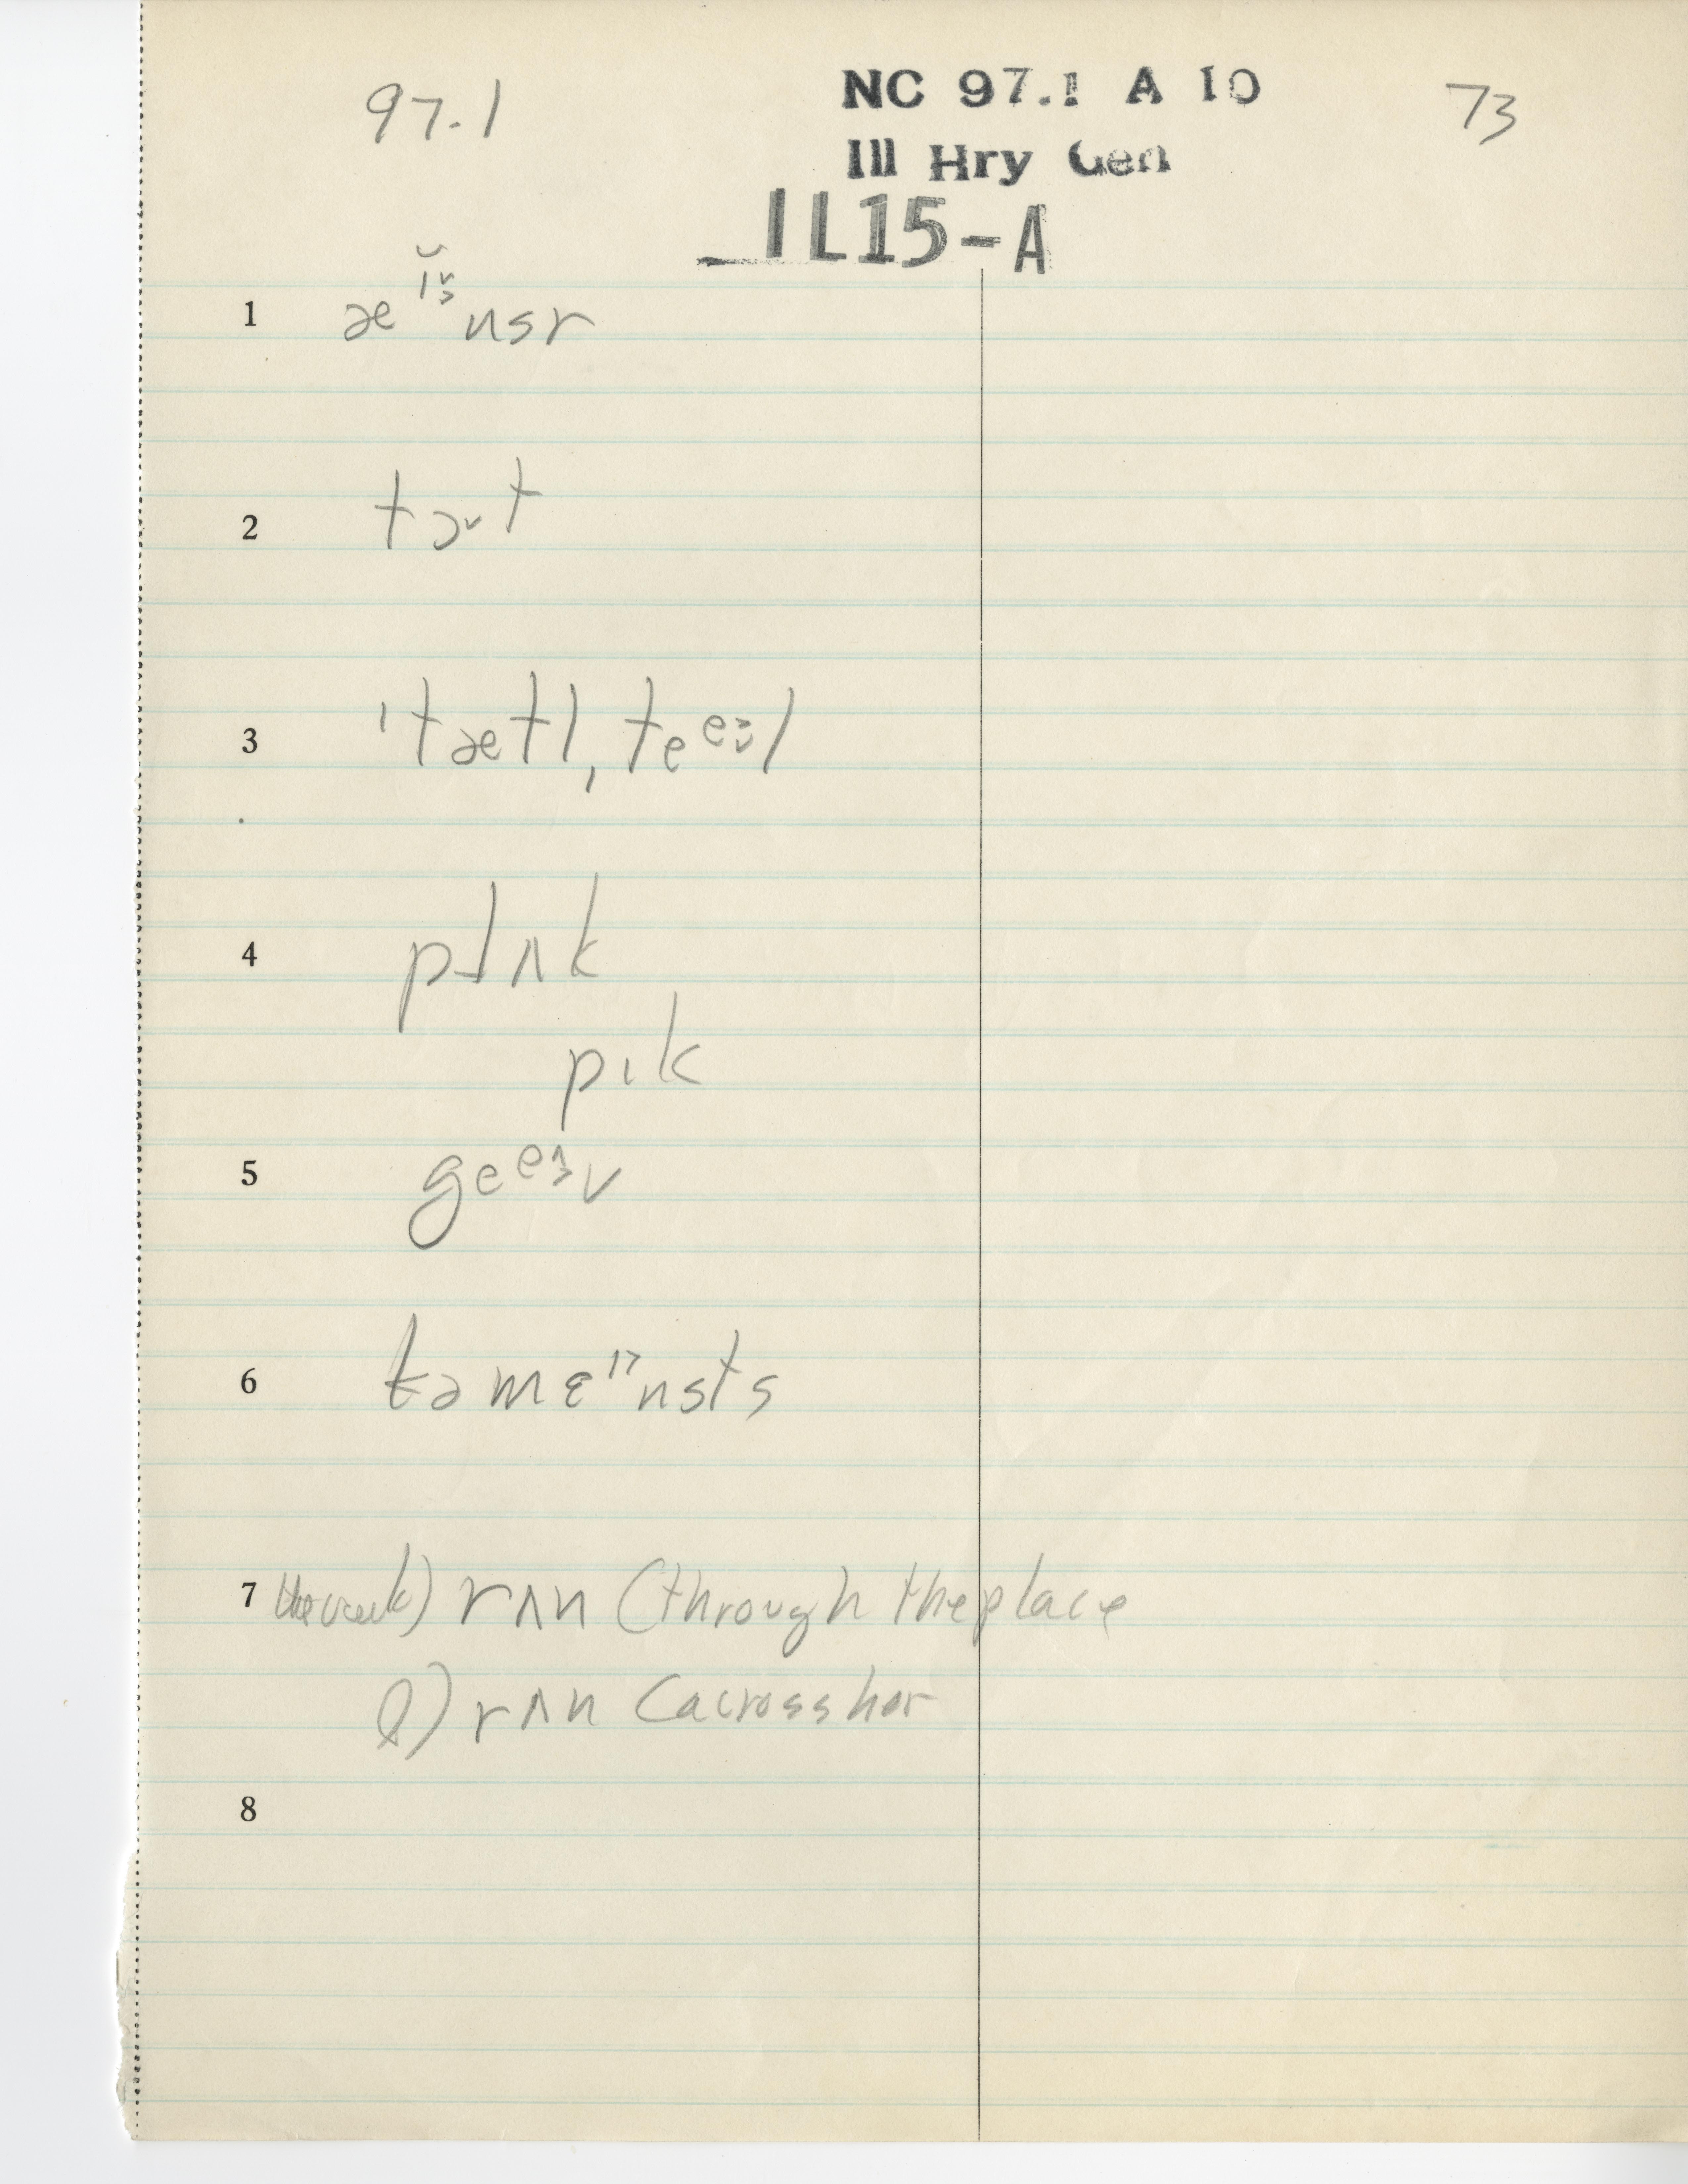 97.1
NC 97.1 A 10
73
Ill Hry Gen
IL15-A
1 æɪ̆˅˃nsr
2 tɔ˅t
3 'tætl, teᵉ˃˅l
4 pɹʌk
pɪk
5 geᵉ˄˃v
6 təmɛᶦ˃nsts
7 rʌn (through the place
Q) rʌn (across her
8